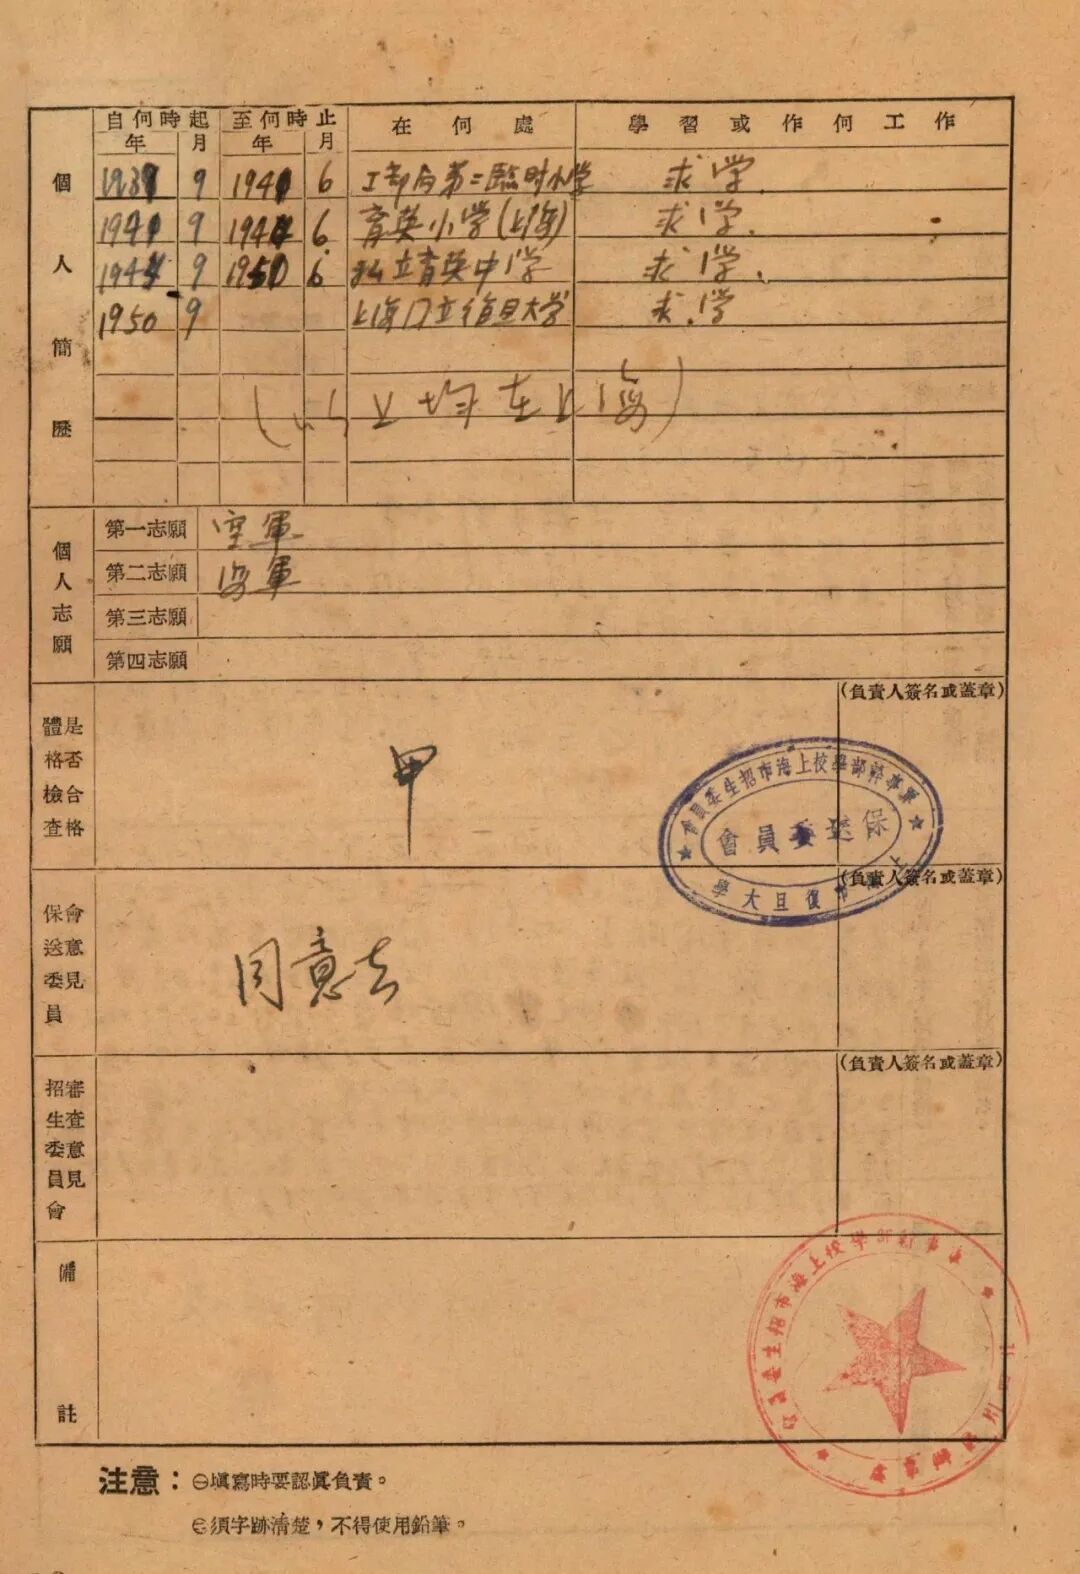 個人簡歷
自何時起 至何時止 在何處 學習或作何工作
年 月 年 月
1939 9 1941 6 工部局第二臨时小学 求学.
1941 9 1944 6 育英小学(上海) 求学.
1944 9 1950 6 私立育英中学 求学.
1950 9 上海 立復旦大学 求学
(以上均在上海)
個人志願
第一志願 空軍
第二志願 海軍
第三志願
第四志願
體格檢查是否合格
甲
(負責人簽名或蓋章)
軍事幹部學校上海市招生委員會
保送委員會
上海市復旦大學
保送委員會意見
同意去
(負責人簽名或蓋章)
招生委員會審查意見
(負責人簽名或蓋章)
備註
軍事幹部學校上海市招生委員會
注意：㊀填寫時要認眞負責。
㊁須字跡清楚，不得使用鉛筆。